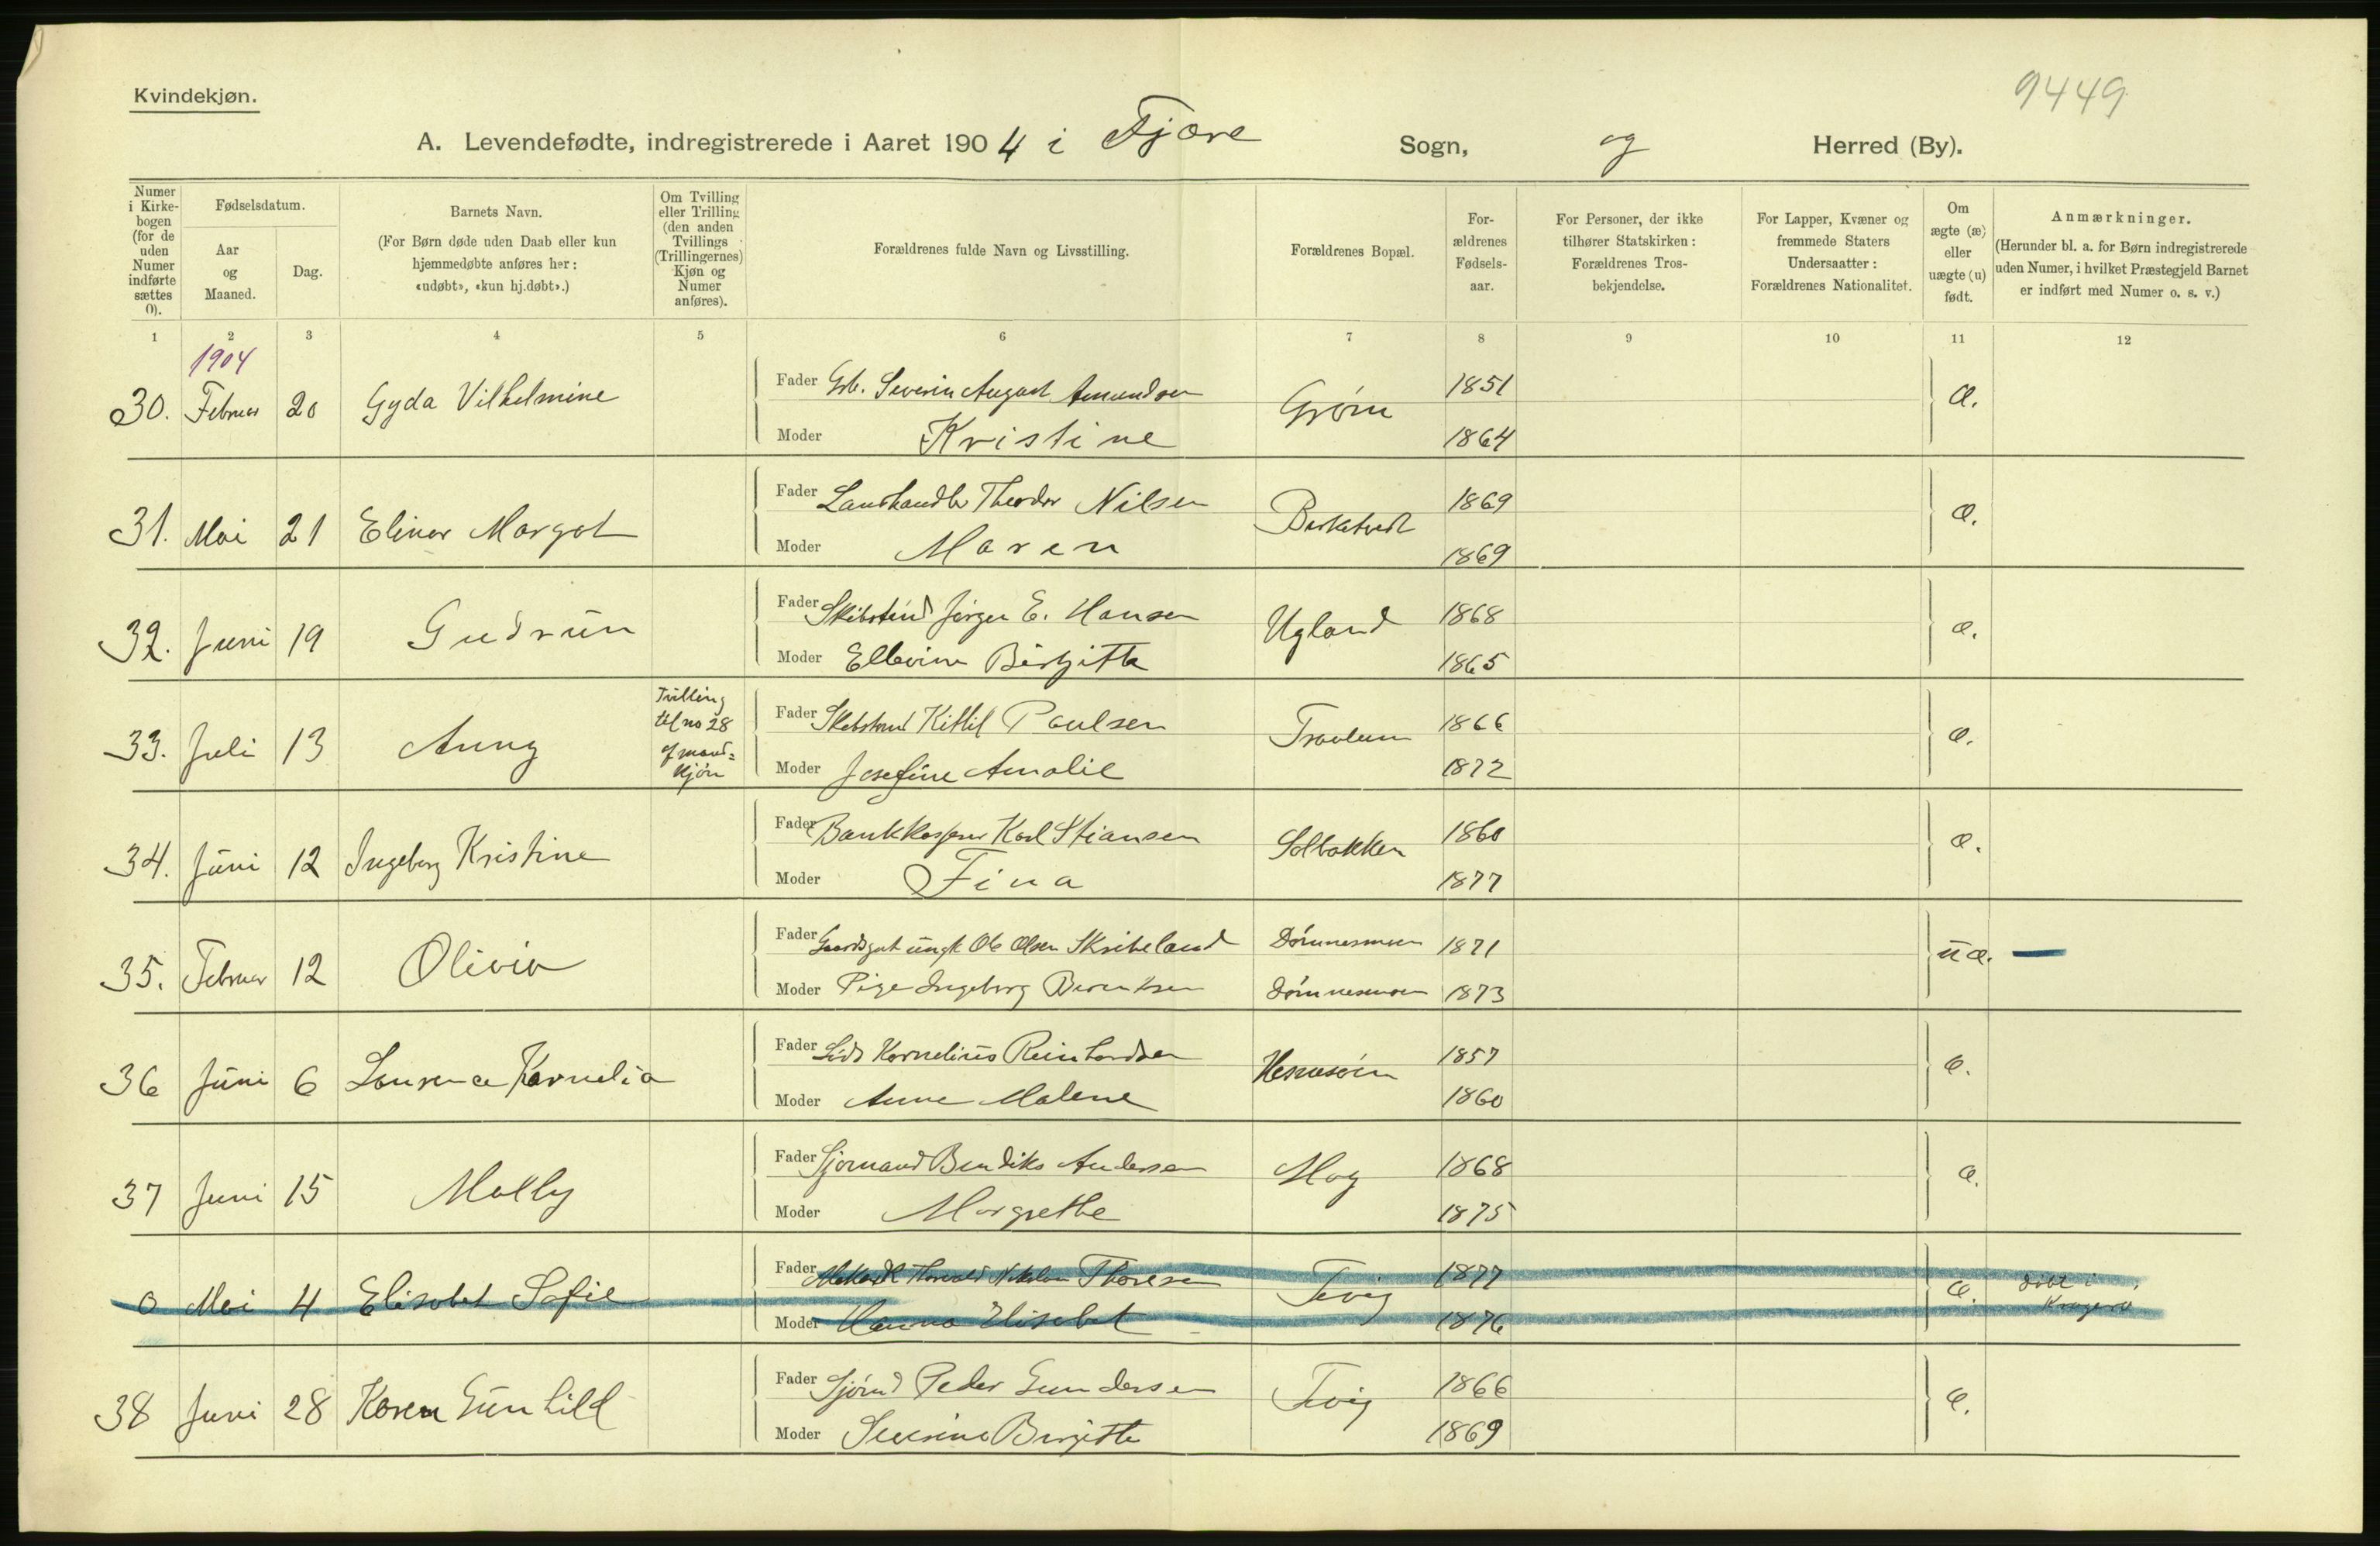 Kvindekjøn.
9449
A. Levendefødte, indregistrerede i Aaret 1904 i Fjære Sogn, og Herred (By).
Numer i Kirkebogen (for de uden Numer indførte sættes 0).
Fødselsdatum.
Aar og Maaned.
Dag.
Barnets Navn.
(For Børn døde uden Daab eller kun hjemmedøbte anføres her: «udøbt», «kun hj.døbt».)
Om Tvilling eller Trilling (den anden Tvillings (Trillingernes) Kjøn og Numer anføres).
Forældrenes fulde Navn og Livsstilling.
Forældrenes Bopæl.
Forældrenes Fødselsaar.
For Personer, der ikke tilhører Statskirken: Forældrenes Trosbekjendelse.
For Lapper, Kvæner og fremmede Staters Undersaatter: Forældrenes Nationalitet.
Om ægte (æ) eller uægte (u) født.
Anmærkninger.
(Herunder bl. a. for Børn indregistrerede uden Numer, i hvilket Præstegjeld Barnet er indført med Numer o. s. v.)
1 2 3 4 5 6 7 8 9 10 11 12
1904
30. Februar 20 Gyda Vilhelmine Fader Gb. Severin August Amundsen Grøm 1851 æ.
Moder Kristine 1864
31. Mai 21 Elinor Margot Fader Landhandler Theodor Nilsen Birketvedt 1869 æ.
Moder Maren 1869
32. Juni 19 Gudrun Fader Skibstømd Jørgen E. Hansen Ugland 1868 æ.
Moder Ellevine Birgitte 1865
33. Juli 13 Anny Tvilling til no 28 af mandkjøn Fader Skibstømd Kittil Paulsen 1866 æ.
Moder Josefine Amalie 1872
34. Juni 12 Ingeborg Kristine Fader Bankkasserer Karl Stiansen Solbakken 1860 æ.
Moder Fina 1877
35. Februar 12 Olivia Fader Gaardsgut ungk Ole Olsen Skribeland Dømmesmoen 1871 uæ. —
Moder Pige Ingeborg Berentsen Dømmesmoen 1873
36 Juni 6 Laurence Kornelia Fader Lods Kornelius Reinhardsen Hesnesøen 1857 æ.
Moder Anne Malene 1860
37 Juni 15 Molly Fader Sjømand Bendiks Andersen Moy 1868 æ.
Moder Margrethe 1875
0 Mai 4 Elisabet Sofie Fader Thorvald Nikolai Thoresen Fevig 1877 æ. døbt i Kragerø
Moder Hanna Elisabet 1876
38 Juni 28 Karen Gunhild Fader Sjømd Peder Gundersen Fevig 1866 æ.
Moder Severine Birgitte 1869